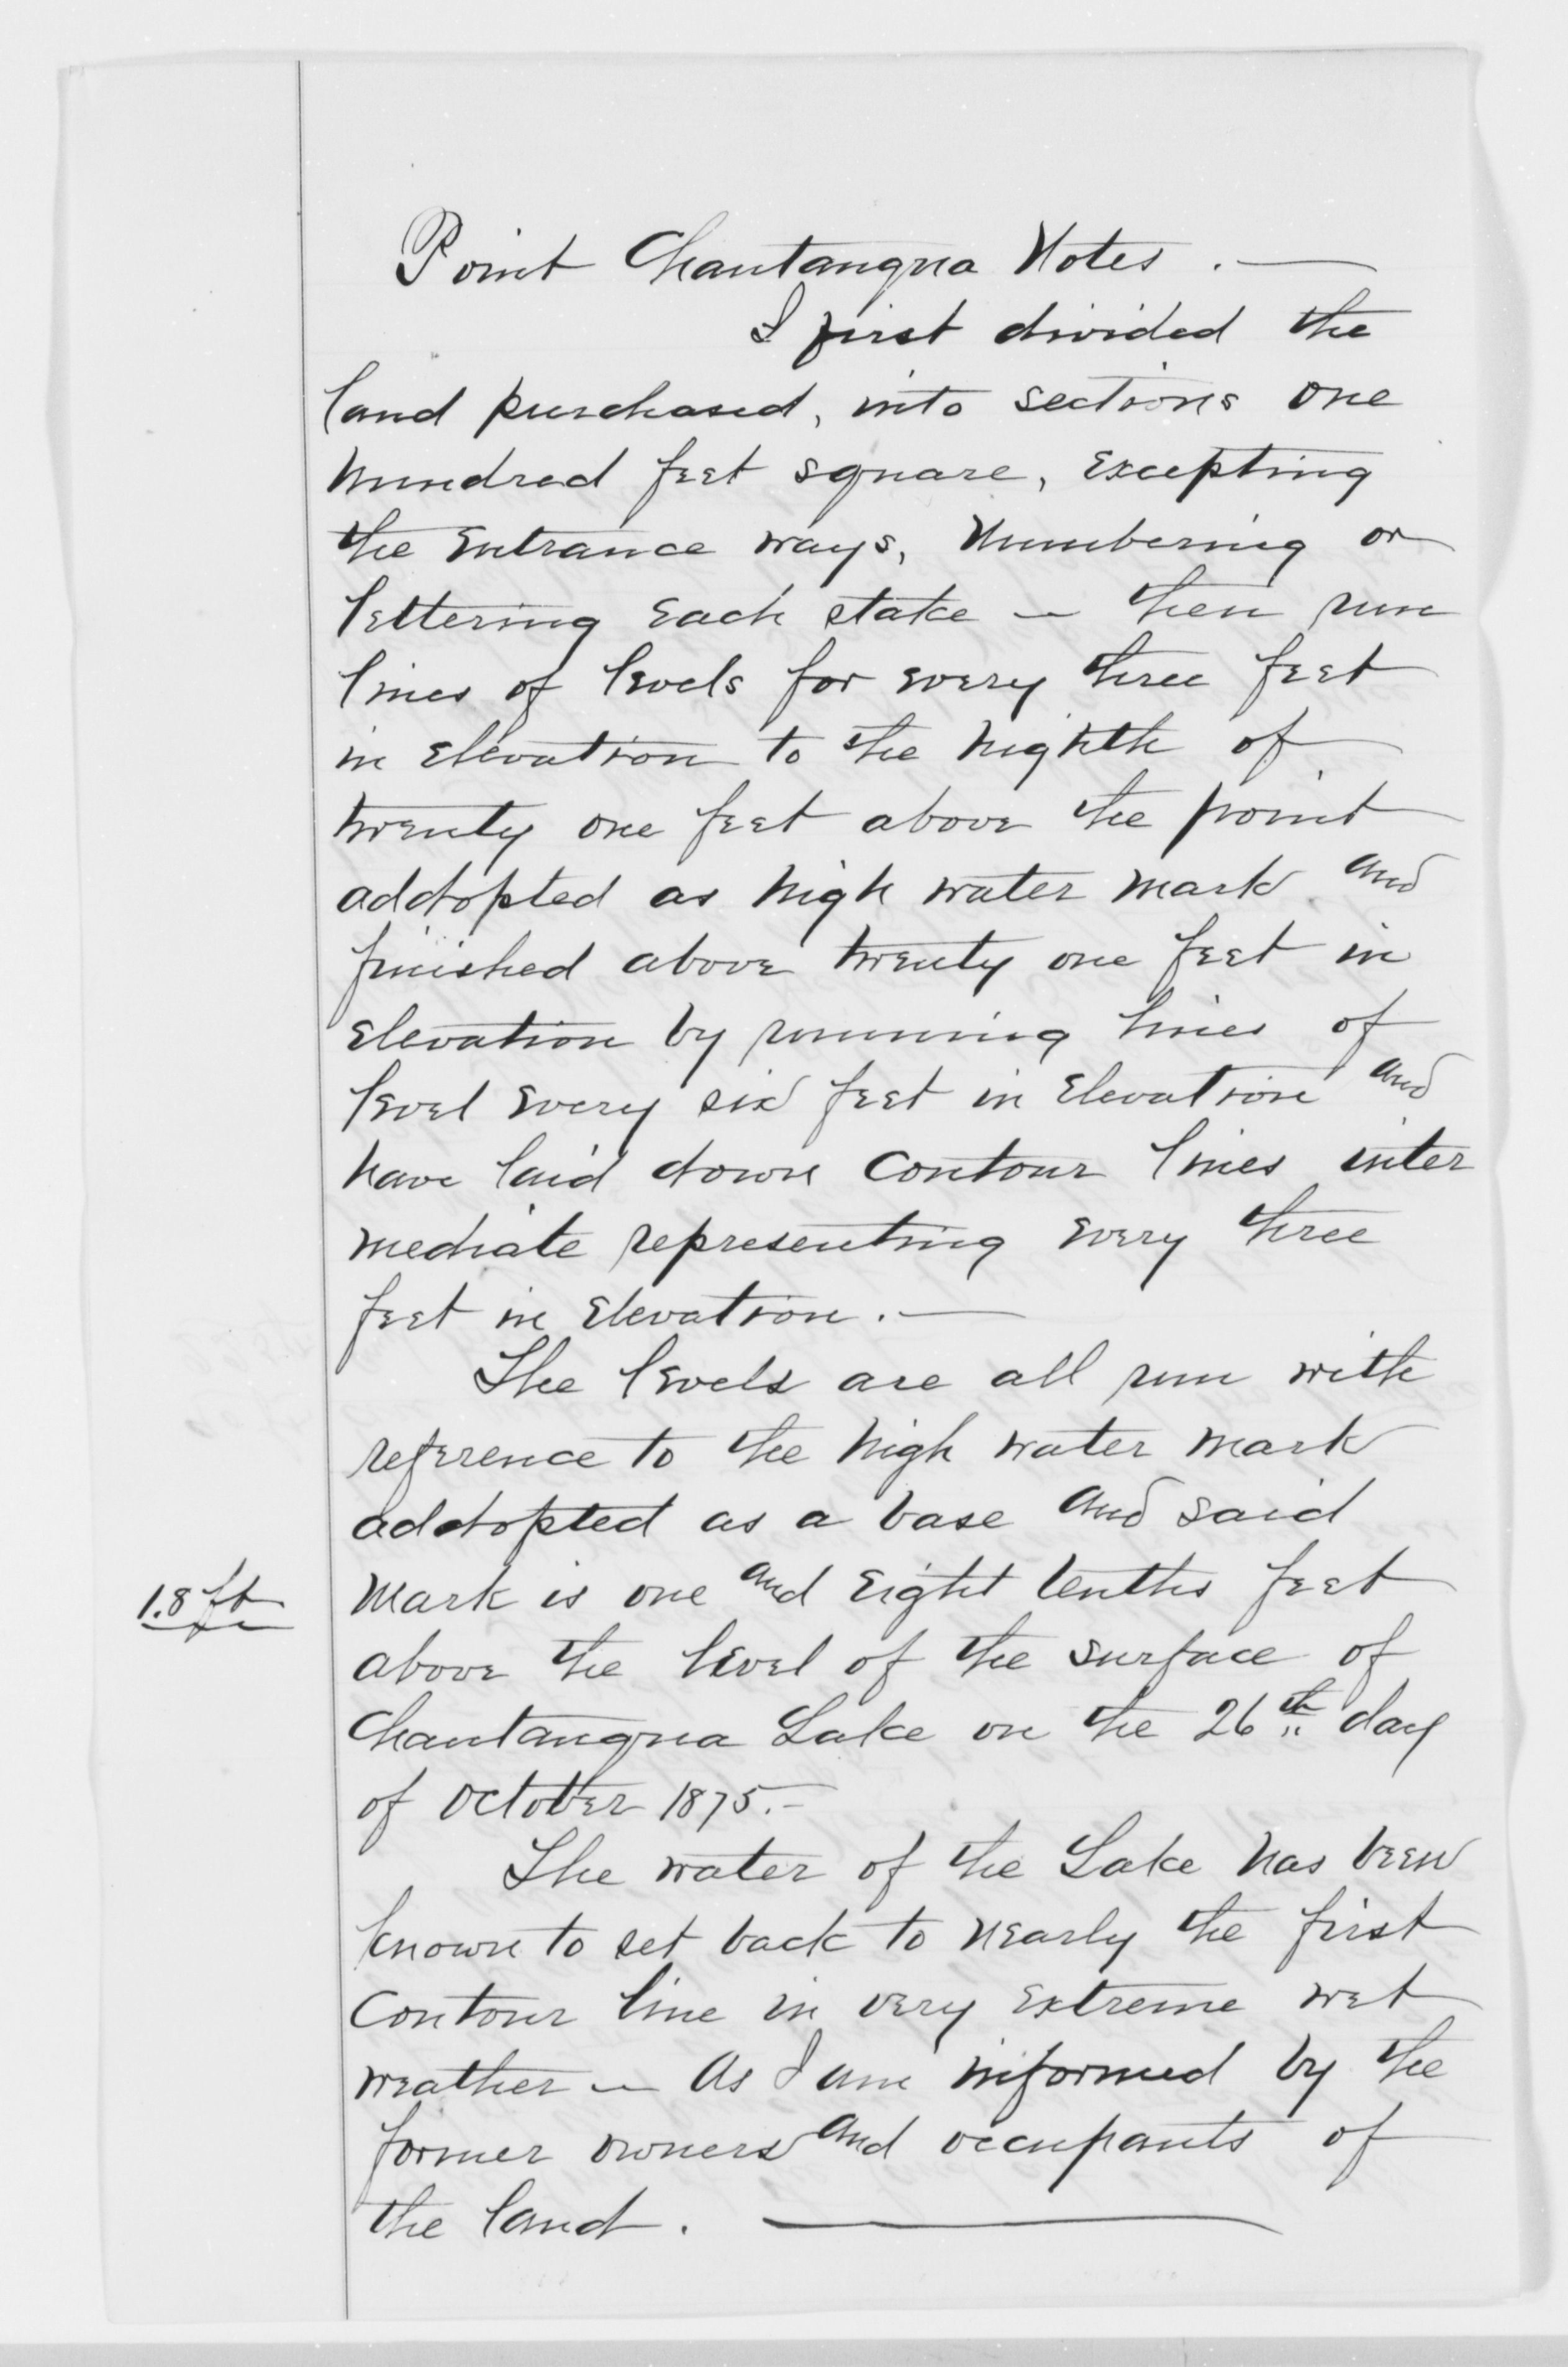 Point Chautauqua Notes . —
I first divided the
land purchased, into sections one
hundred feet square, Excepting
the Entrance ways, Numbering or
lettering Each stake — then run
lines of levels for Every three feet
in Elevation to the highth of
twenty one feet above the point
addopted as high water mark and
finished above twenty one feet in
Elevation by running lines of
level Every six feet in Elevation and
have laid down Contour lines inter
mediate representing Every three
feet in Elevation. —
The levels are all run with
reference to the high water mark
addopted as a base and said
1.8 ft
Mark is one and Eight tenths feet
above the level of the surface of
Chautauqua Lake on the 26th day
of October 1875.-
The water of the Lake has been
known to set back to nearly the first
Contour line in very Extreme wet
weather — As I am informed by the
former owners and occupants of
the land. —